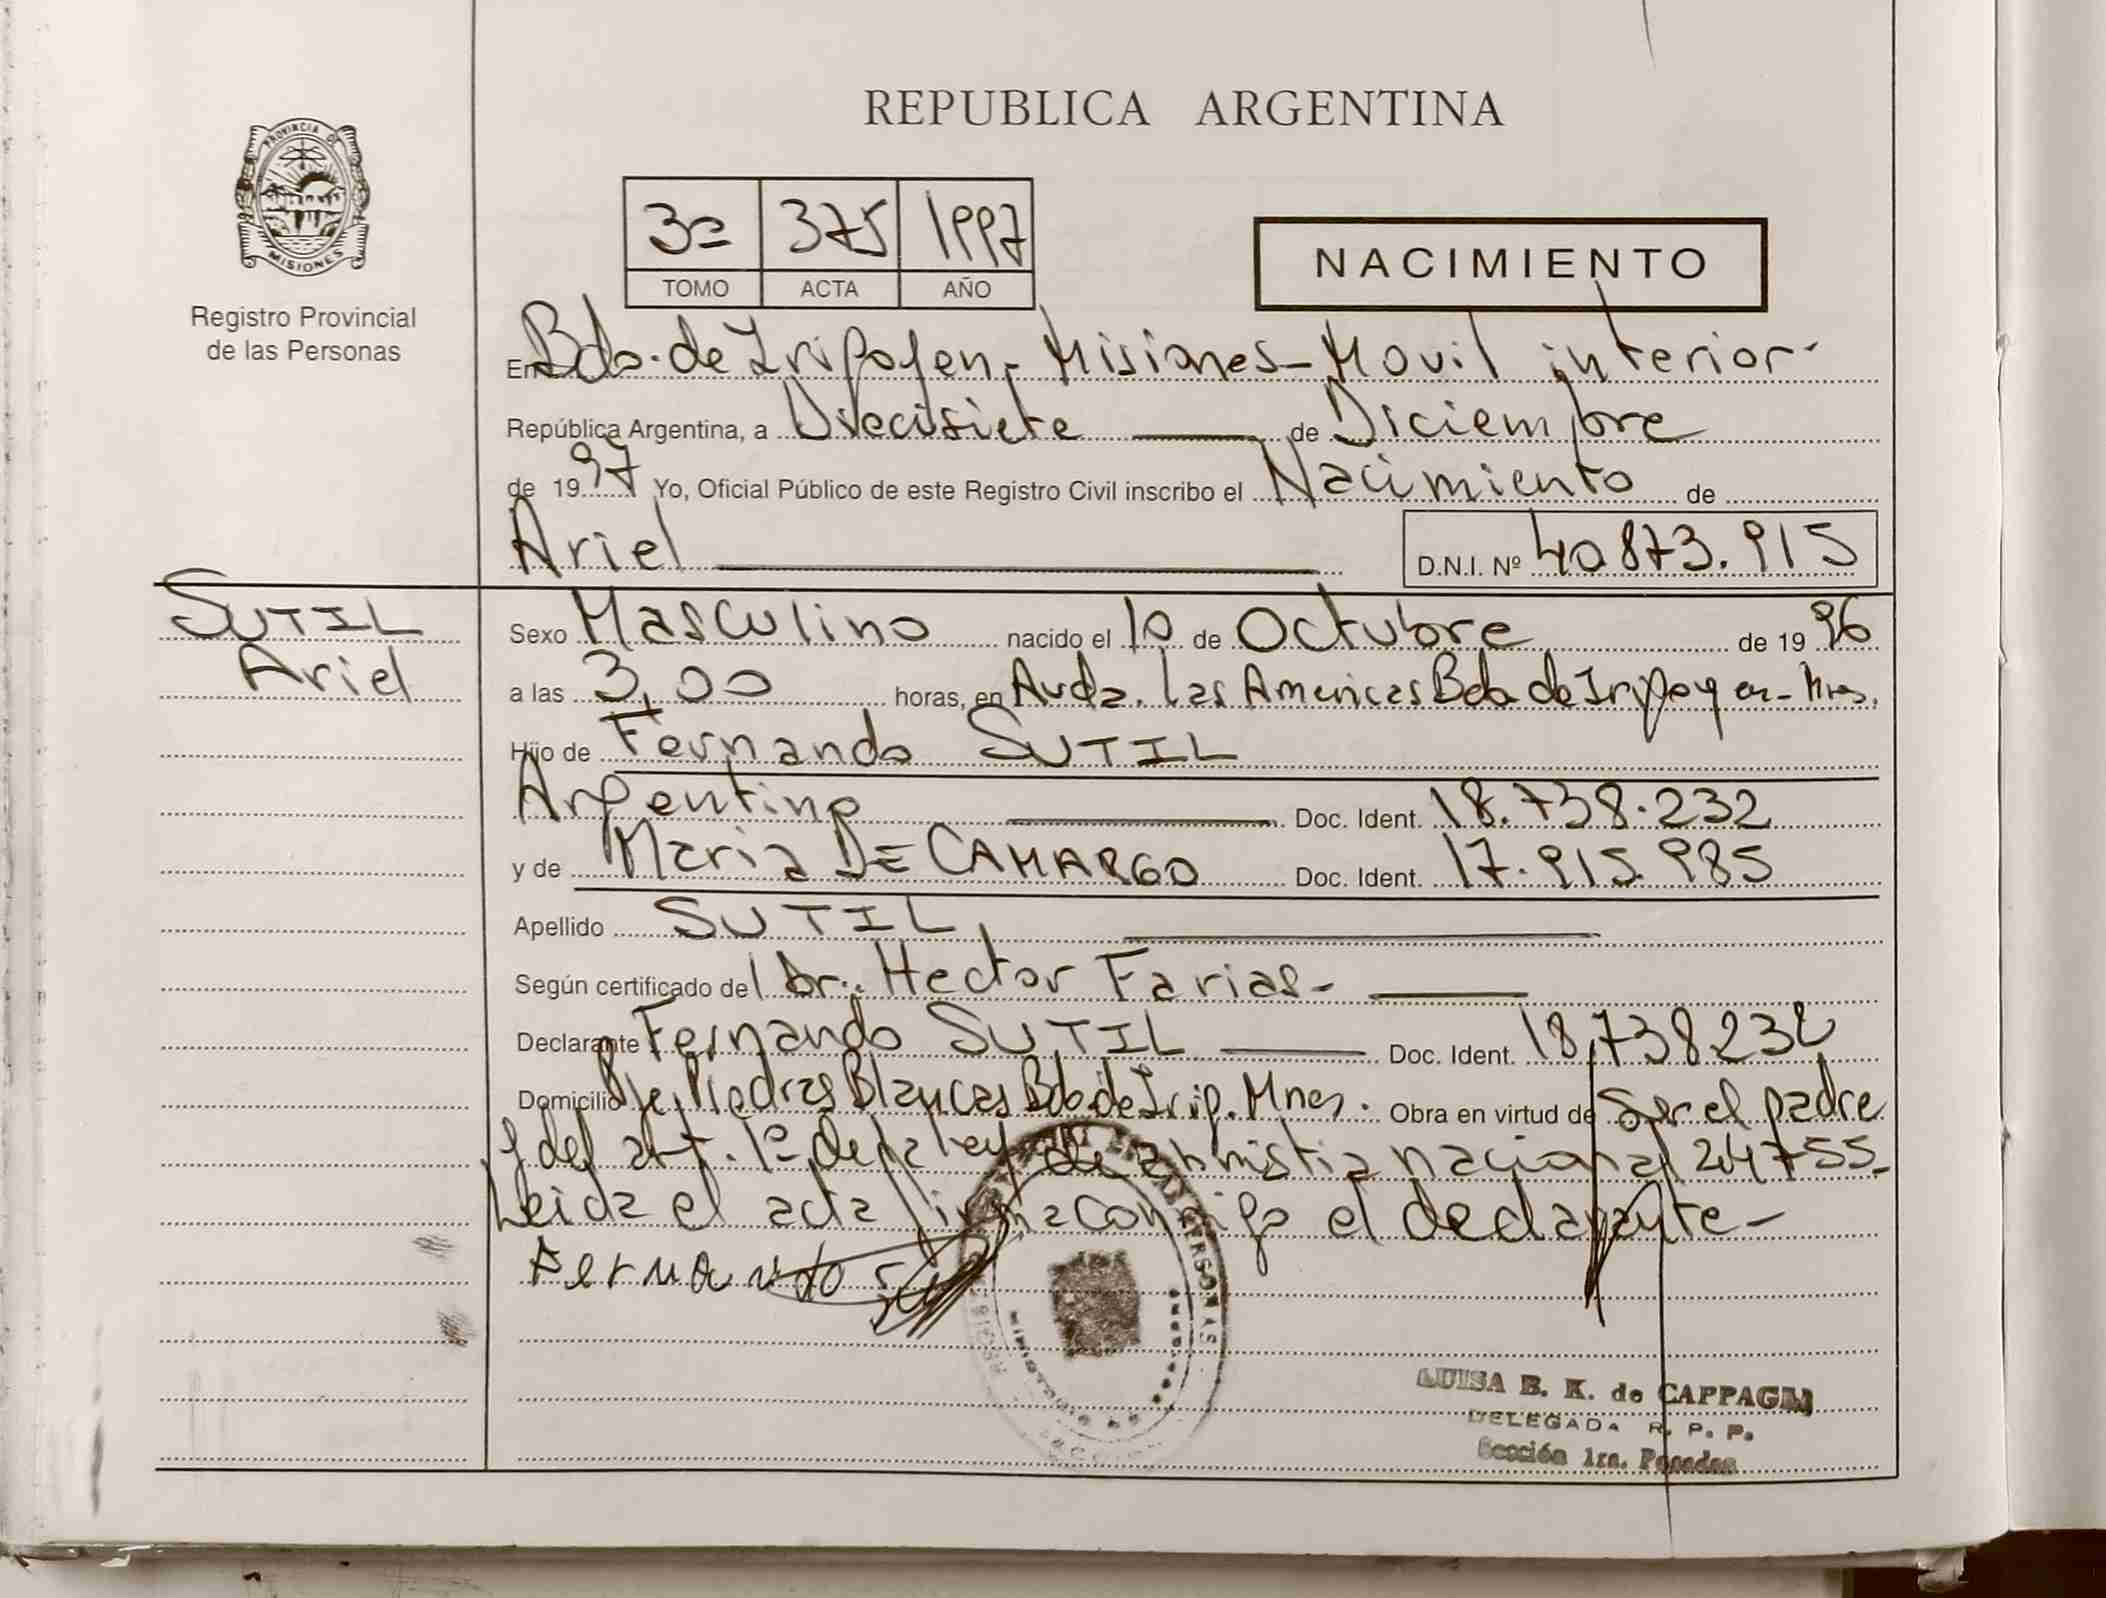 REPUBLICA ARGENTINA
PROVINCIA DE
MISIONES
Registro Provincial
de las Personas
3º 375 1997
TOMO ACTA AÑO
NACIMIENTO
En Bdo. de Irigoyen - Misiones - Movil interior -
República Argentina, a Diecisiete de Diciembre
de 1997 Yo, Oficial Público de este Registro Civil inscribo el Nacimiento de
Ariel D.N.I. Nº 40.873.915
SUTIL
Ariel
Sexo Masculino nacido el 10 de Octubre de 1996
a las 3,00 horas, en Avda. las Americas Bdo de Irigoyen - Mnes.
Hijo de Fernando SUTIL
Argentino Doc. Ident. 18.738.232
y de Maria DE CAMARGO Doc. Ident. 17.915.985
Apellido SUTIL
Según certificado del Dr. Hector Farias -
Declarante Fernando SUTIL Doc. Ident. 18,738232
Domicilio Piedras Blancas Bdo de Irig. Mnes. Obra en virtud de Ser el padre
y del art. 1º de la ley de amnistia nacional 24755 -
Leida el acta firma conmigo el declarante -
Fernando
LUISA B. K. de CAPPAGLI
DELEGADA R. P. P.
Sección 1ra. Posadas